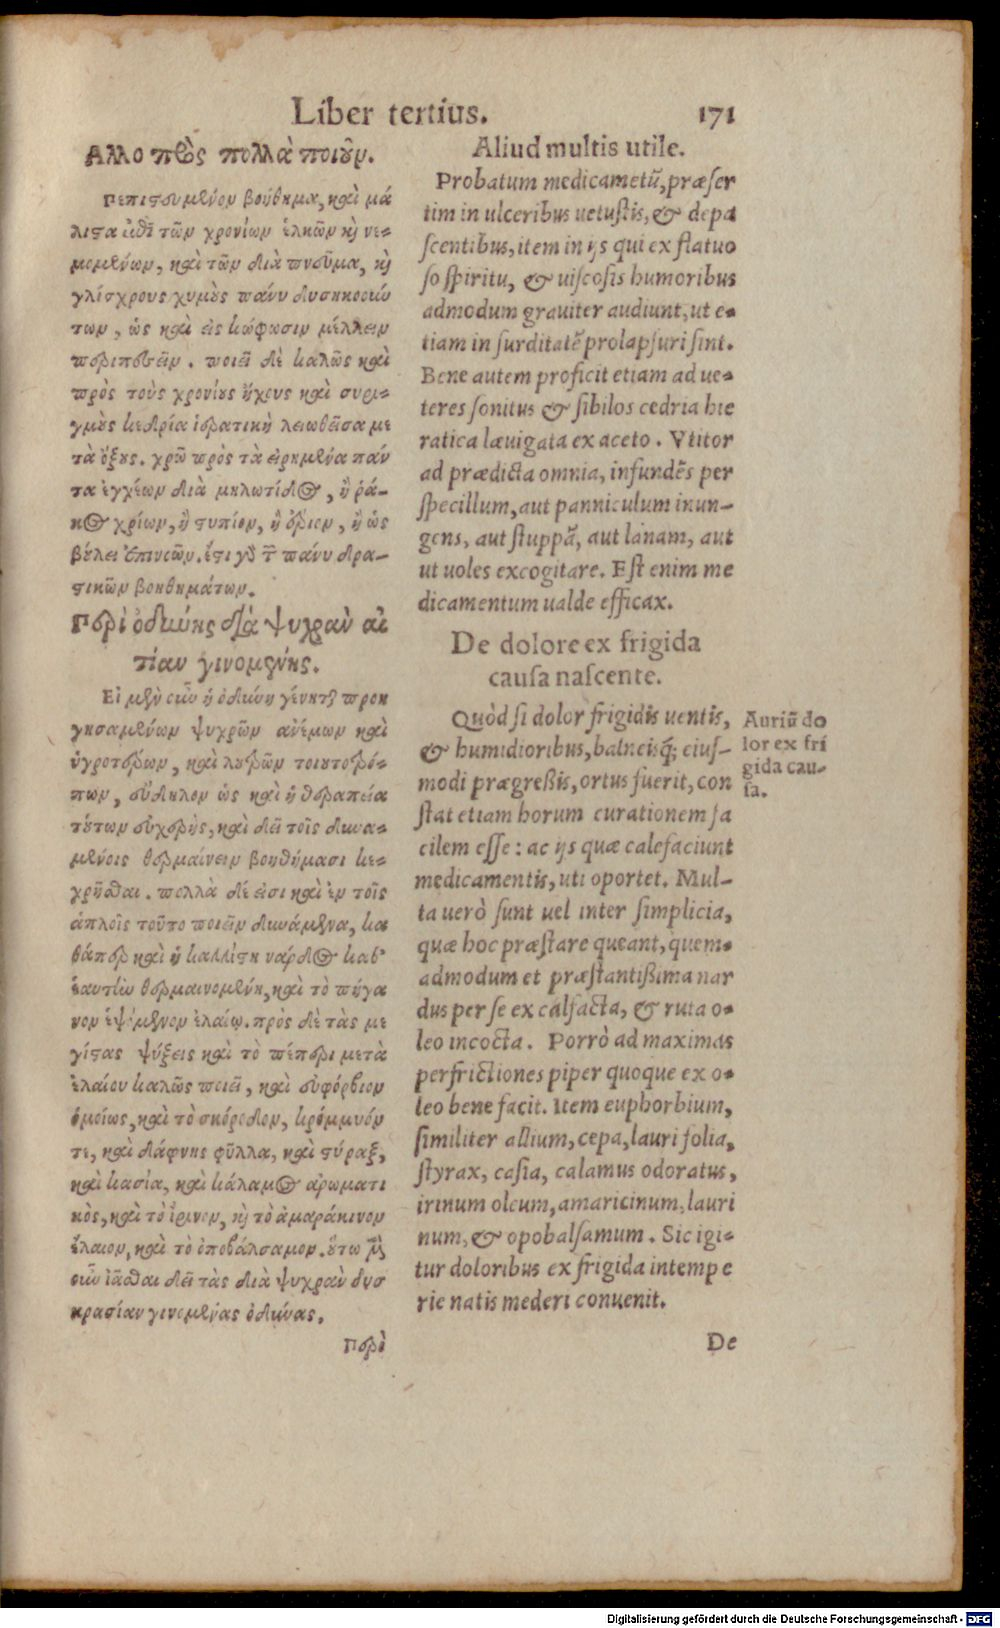 Liber tertius. 171
Ἄλλο πρὸς πολλὰ ποιοῦν.
Πεπιστευμένον βοήθημα, καὶ μά
λιστα ἐπὶ τῶν χρονίων ἑλκῶν καὶ νε-
μομένων, καὶ τῶν διὰ πνεῦμα, καὶ
γλίσχρους χυμοὺς πάνυ δυσηκούν
των, ὡς καὶ εἰς κώφωσιν μέλλειν
περιπεσεῖν. ποιεῖ δὲ καλῶς καὶ
πρὸς τοὺς χρονίους ἤχους καὶ συρι-
γμοὺς κεδρία ἱερατικὴ λειωθεῖσα με
τὰ ὄξους. χρῶ πρὸς τὰ εἰρημένα πάν
τα ἐγχέων διὰ μηλωτίδος, ἢ ῥά-
κος χρίων, ἢ στυπίον, ἢ ἔριον, ἢ ὡς
βούλει ἐπινοῶν. ἔστι γὰρ τῶν πάνυ δρα-
στικῶν βοηθημάτων.
Περὶ ὀδύνης διὰ ψυχρὰν αἰ
τίαν γινομένης.
Εἰ μὲν οὖν ἡ ὀδύνη γένηται προη
γησαμένων ψυχρῶν ἀνέμων καὶ
ὑγροτέρων, καὶ λουτρῶν τοιουτοτρό-
πων, εὔδηλον ὡς καὶ ἡ θεραπεία
τούτων εὐχερὴς, καὶ δεῖ τοῖς δυνα-
μένοις θερμαίνειν βοηθήμασι κε-
χρῆσθαι. πολλὰ δέ εἰσι καὶ ἐν τοῖς
ἁπλοῖς τοῦτο ποιεῖν δυνάμενα, κα
θάπερ καὶ ἡ καλλίστη νάρδος καθ'
ἑαυτὴν θερμαινομένη, καὶ τὸ πήγα
νον ἑψόμενον ἐλαίῳ. πρὸς δὲ τὰς με
γίστας ψύξεις καὶ τὸ πέπερι μετὰ
ἐλαίου καλῶς ποιεῖ, καὶ εὐφόρβιον
ὁμοίως, καὶ τὸ σκόροδον, κρόμμυόν
τε, καὶ δάφνης φῦλλα, καὶ στύραξ,
καὶ κασία, καὶ κάλαμος ἀρωματι
κὸς, καὶ τὸ ἴρινον, καὶ τὸ ἀμαράκινον
ἔλαιον, καὶ τὸ ὀποβάλσαμον. οὕτω μὲν
οὖν ἰᾶσθαι δεῖ τὰς διὰ ψυχρὰν δυσ
κρασίαν γινομένας ὀδύνας.
Περὶ
Aliud multis utile.
Probatum medicametū, præser
tim in ulceribus uetustis, & depa
scentibus, item in ijs qui ex flatuo
so spiritu, & uiscosis humoribus
admodum grauiter audiunt, ut e-
tiam in surditatē prolapsuri sint.
Bene autem proficit etiam ad ue-
teres sonitus & sibilos cedria hie
ratica læuigata ex aceto. Vtitor
ad prædicta omnia, infundēs per
specillum, aut panniculum inun-
gens, aut stuppā, aut lanam, aut
ut uoles excogitare. Est enim me
dicamentum ualde efficax.
De dolore ex frigida
causa nascente.
Quòd si dolor frigidis uentis,
& humidioribus, balneisq; eius-
modi prægreßis, ortus fuerit, con
stat etiam horum curationem fa
cilem esse: ac ijs quæ calefaciunt
medicamentis, uti oportet. Mul-
ta uerò sunt uel inter simplicia,
quæ hoc præstare queant, quem-
admodum et præstantißima nar
dus per se ex calfacta, & ruta o-
leo incocta. Porrò ad maximas
perfrictiones piper quoque ex o-
leo bene facit. Item euphorbium,
similiter allium, cepa, lauri folia,
styrax, casia, calamus odoratus,
irinum oleum, amaricinum, lauri
num, & opobalsamum. Sic igi-
tur doloribus ex frigida intempe
rie natis mederi conuenit.
De
Auriū do
lor ex fri
gida cau-
sa.
Digitalisierung gefördert durch die Deutsche Forschungsgemeinschaft - DFG